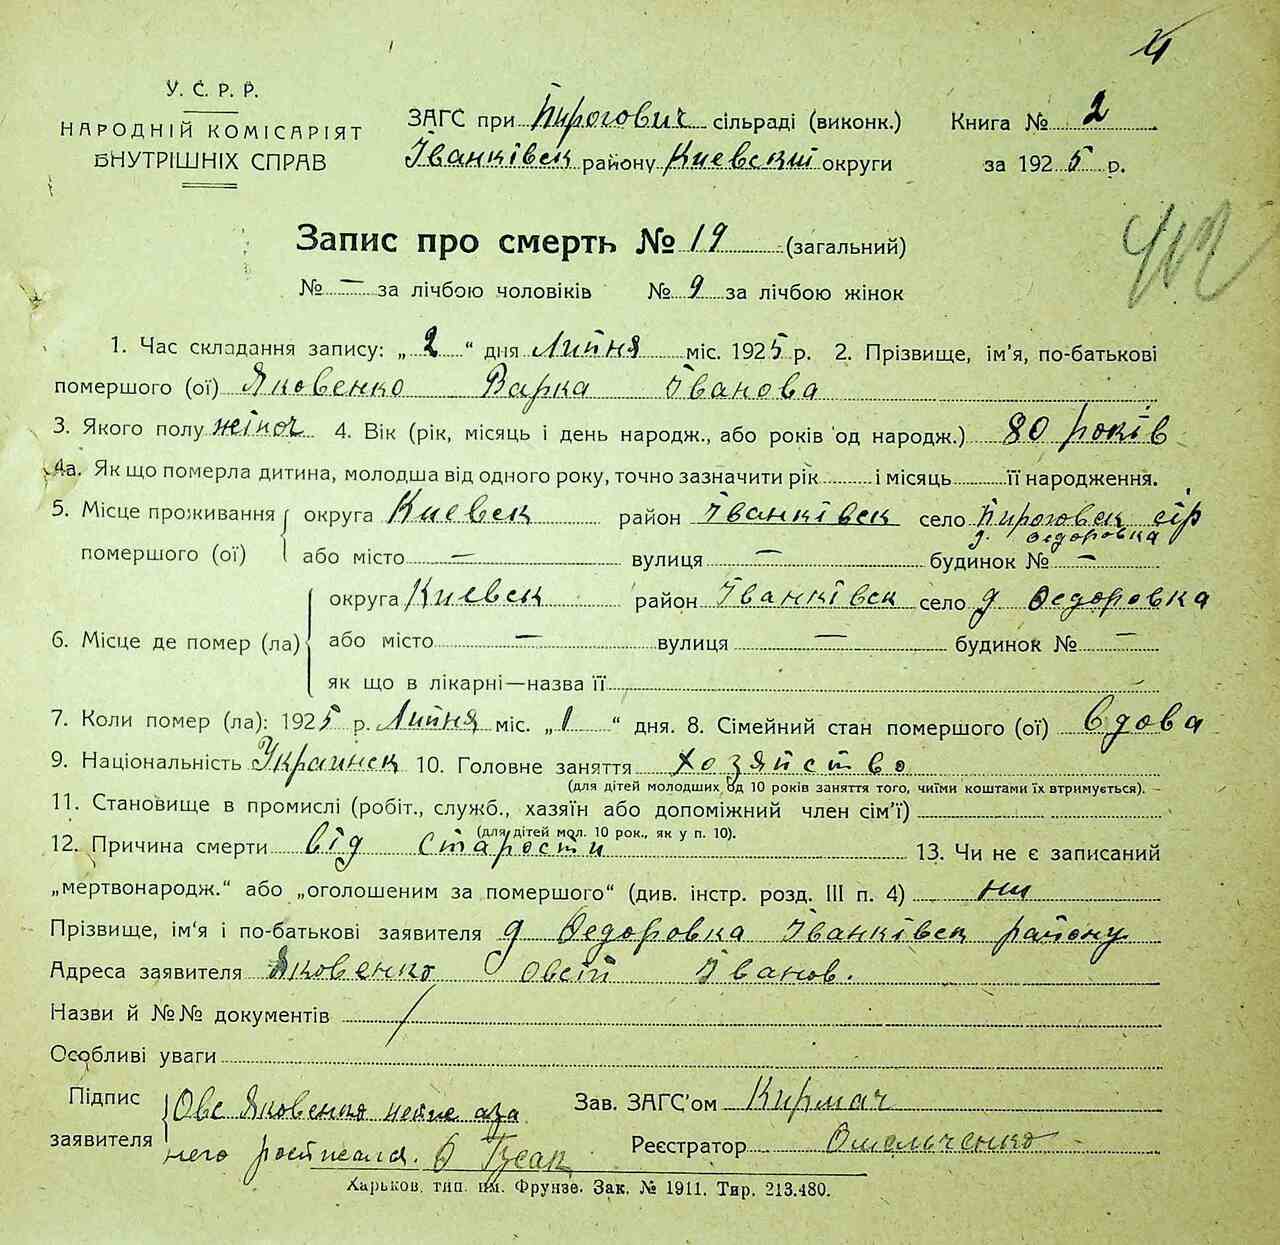 У. С. Р. Р.
НАРОДНІЙ КОМІСАРІЯТ
ВНУТРІШНІХ СПРАВ
ЗАГС при Пирогович сільраді (виконк.)
Іванківск району Киевский округи
Книга № 2
за 1925 р.
412
Запис про смерть № 19 (загальний)
№ — за лічбою чоловіків № 9 за лічбою жінок
1. Час складання запису: „2“ дня Липня міс. 1925 р. 2. Прізвище, ім'я, по-батькові
помершого (ої) Яковенко Варка Іванова
3. Якого полу жіноч 4. Вік (рік, місяць і день народж., або років од народж.) 80 років
4а. Як що померла дитина, молодша від одного року, точно зазначити рік і місяць її народження.
5. Місце проживання помершого (ої) округа Киевск район Іванківск село Пироговск с/р
д. Федоровка
або місто — вулиця — будинок № —
6. Місце де помер (ла) округа Киевск район Іванківск село д Федоровка
або місто — вулиця — будинок № —
як що в лікарні—назва її
7. Коли помер (ла): 1925 р. Липня міс. „1“ дня. 8. Сімейний стан помершого (ої) вдова
9. Національність Украинск 10. Головне заняття хозяйство
(для дітей молодших од 10 років заняття того, чиїми коштами їх втримується).
11. Становище в промислі (робіт., служб., хазяїн або допоміжний член сім'ї)
(для дітей мол. 10 рок., як у п. 10).
12. Причина смерти від старости 13. Чи не є записаний
„мертвонародж.“ або „оголошеним за помершого“ (див. інстр. розд. III п. 4) ни
Прізвище, ім'я і по-батькові заявителя д Федоровка Іванківск району
Адреса заявителя Яковенко Овсій Іванов.
Назви й №№ документів
Особливі уваги
Підпис заявителя Овс Яковенко а за
него росписалд. Гусак
Зав. ЗАГС'ом Кирмач
Реєстратор Омельченко
Харьков, тип. им. Фрунзе. Зак. № 1911. Тир. 213.480.